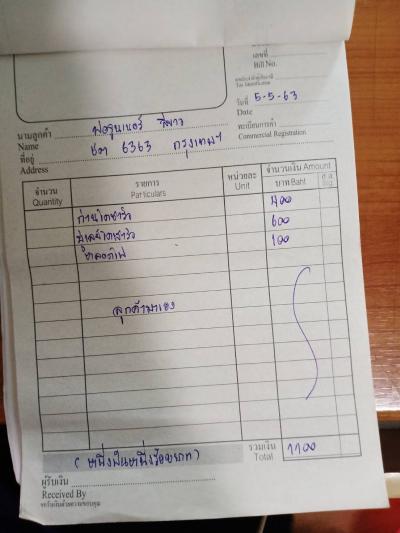 เลขที่
Bill No.
Tax Identification
วันที่ 5-5-63
Date
นามลูกค้า ฟอจูนเนอร์ สีขาว
Name
ทะเบียนการค้า
Commercial Registration
ที่อยู่ 6363 กรุงเทพฯ
Address
จำนวน
Quantity
รายการ
Particulars
หน่วยละ
Unit
จำนวนเงิน Amount
บาท Baht
ส.ต.
Stg.
400
600
100
ลูกค้ามาเอง
(หนึ่งพันหนึ่งร้อยบาท)
รวมเงิน
Total
1100
ผู้รับเงิน
Received By
ขอรับเงินด้วยความขอบคุณ